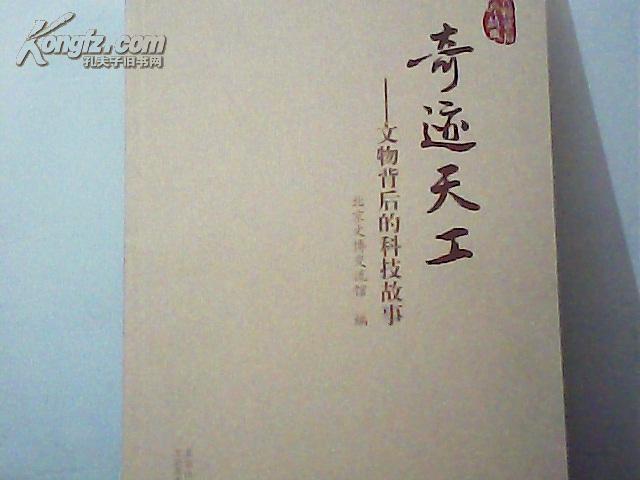 Kongfz.com
孔夫子旧书网
奇迹天工
——文物背后的科技故事
北京文博交流馆 编